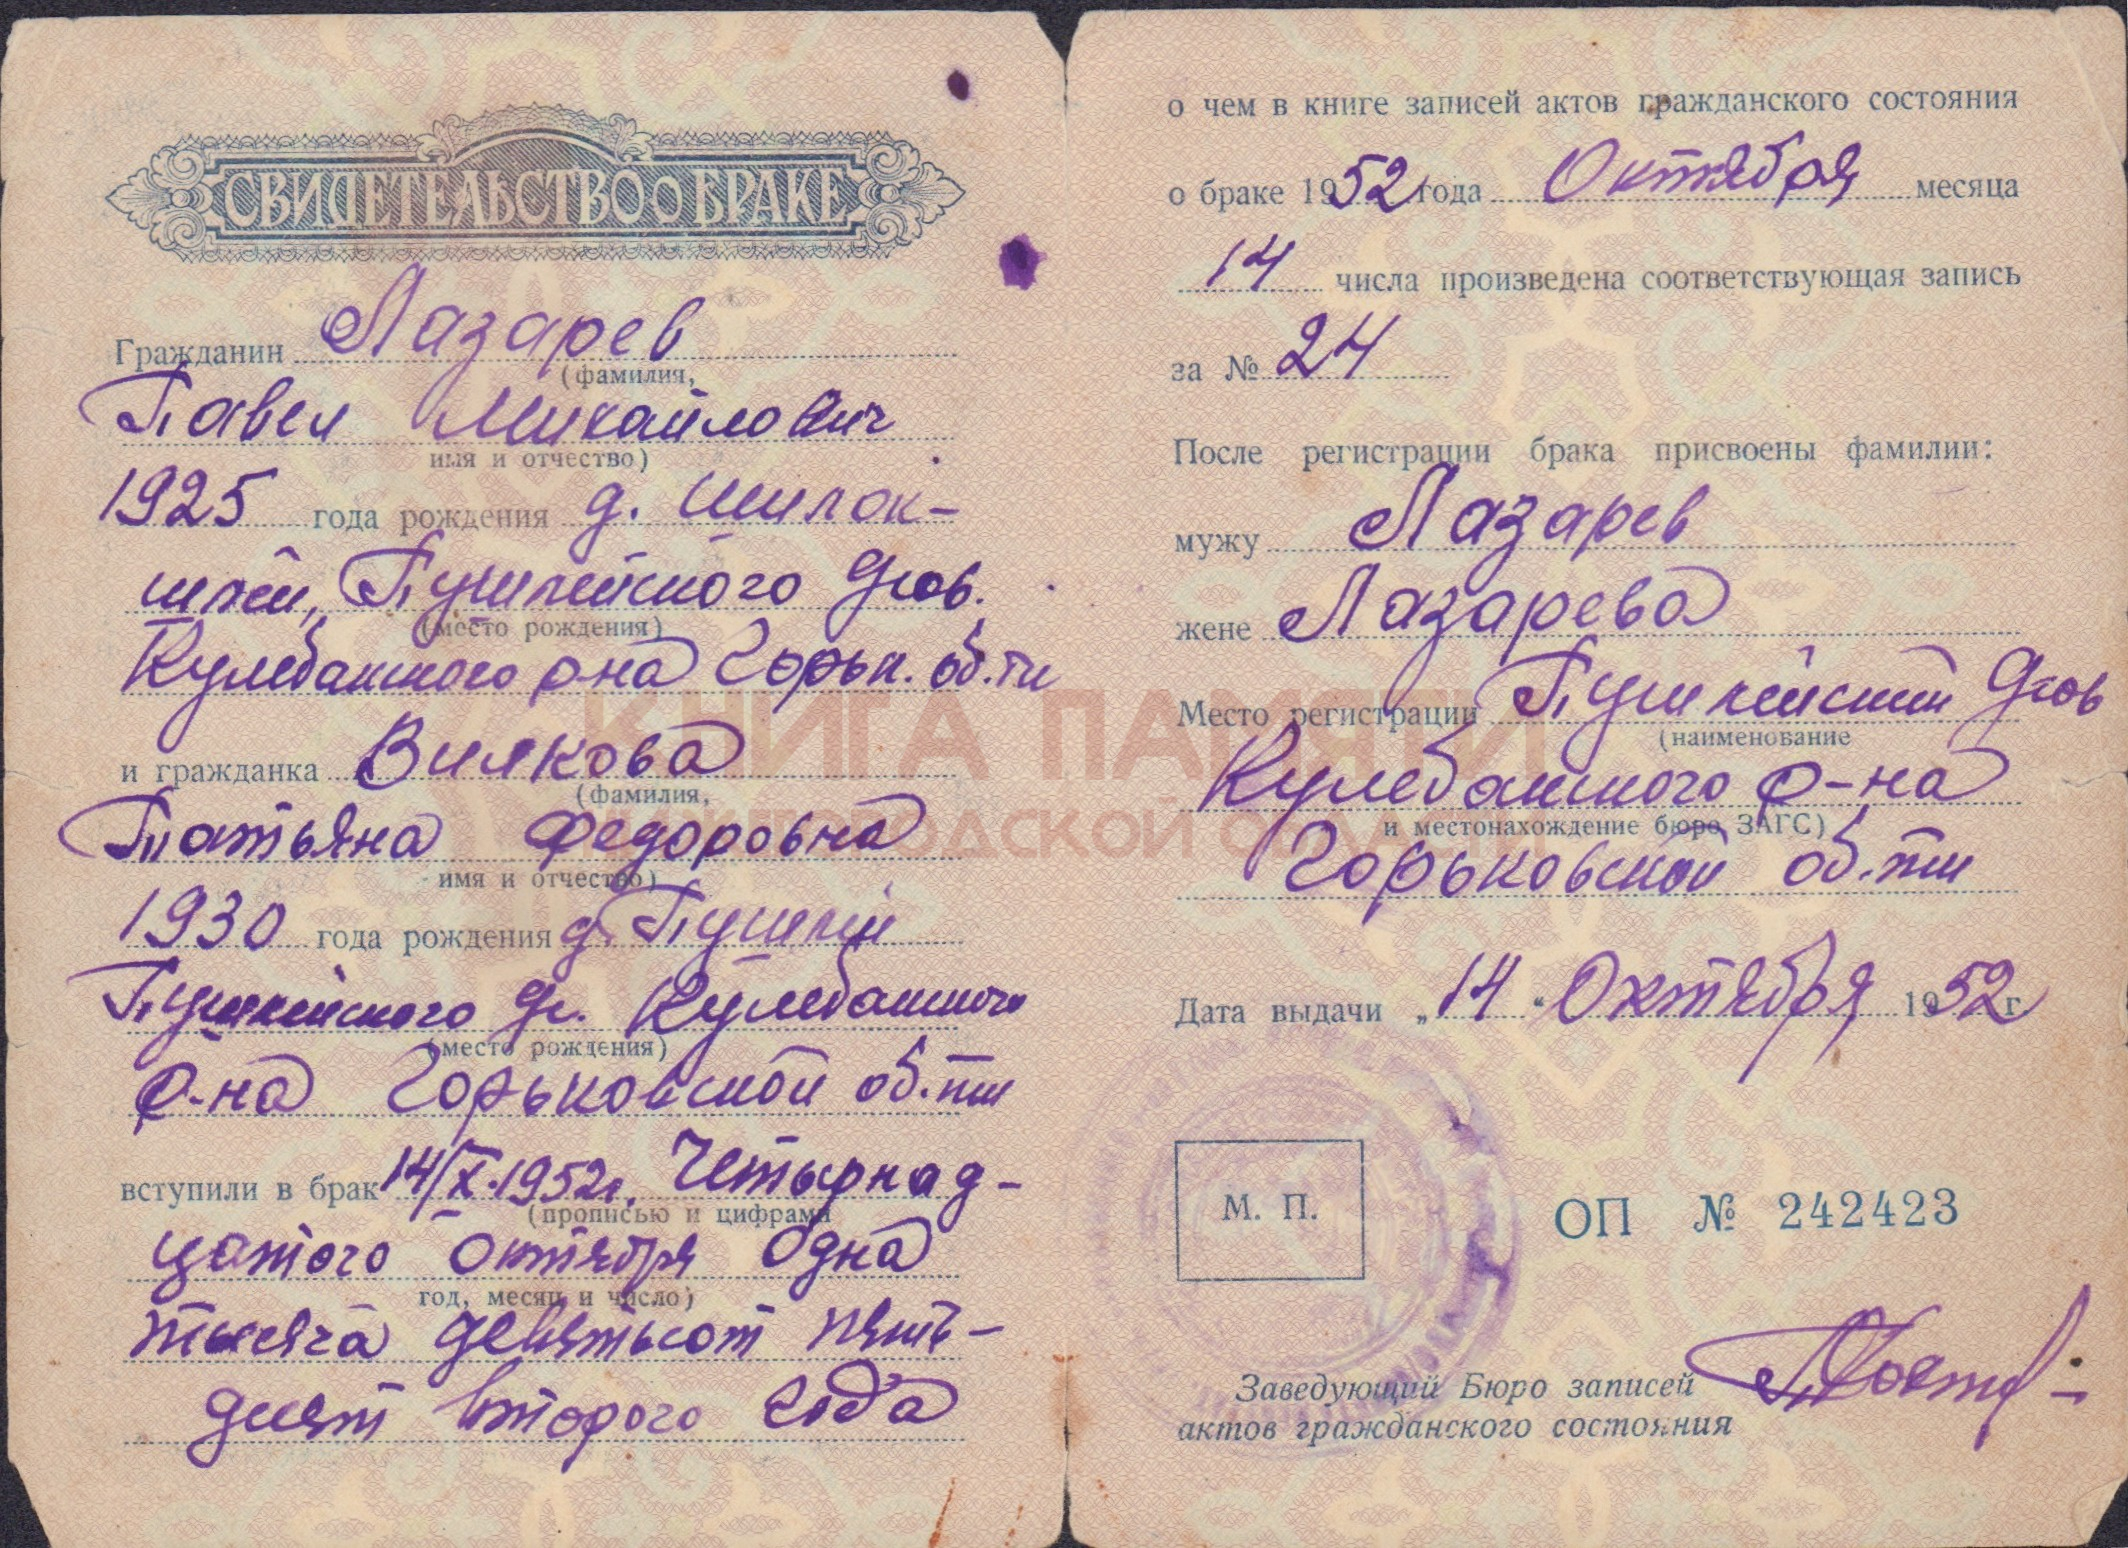 СВИДЕТЕЛЬСТВО о БРАКЕ
Гражданин Лазарев
(фамилия,
Павел Михайлович
имя и отчество)
1925 года рождения д. Шилок-
шлей, Пушлейского
(место рождения)
Кулебакского р-на Горьк. об.ти
и гражданка Вилкова
(фамилия,
Татьяна Федоровна
имя и отчество)
1930 года рождения д. Пушлей
Пушлейского Кулебакского
(место рождения)
р-на Горьковской об.ти
вступили в брак 14/X.1952г. Четырнад-
(прописью и цифрами
цатого Октября Одна
год, месяц и число)
тысяча девятьсот пять-
десят второго года
о чем в книге записей актов гражданского состояния
о браке 1952 года Октября месяца
14 числа произведена соответствующая запись
за № 24
После регистрации брака присвоены фамилии:
мужу Лазарев
жене Лазарева
Место регистрации Пушлейский
(наименование
Кулебакского р-на
и местонахождение бюро ЗАГС)
Горьковской об.ти
Дата выдачи „14" Октября 1952 г.
М. П.
ОП № 242423
Заведующий Бюро записей
актов гражданского состояния
КНИГА ПАМЯТИ
НИЖЕГОРОДСКОЙ ОБЛАСТИ